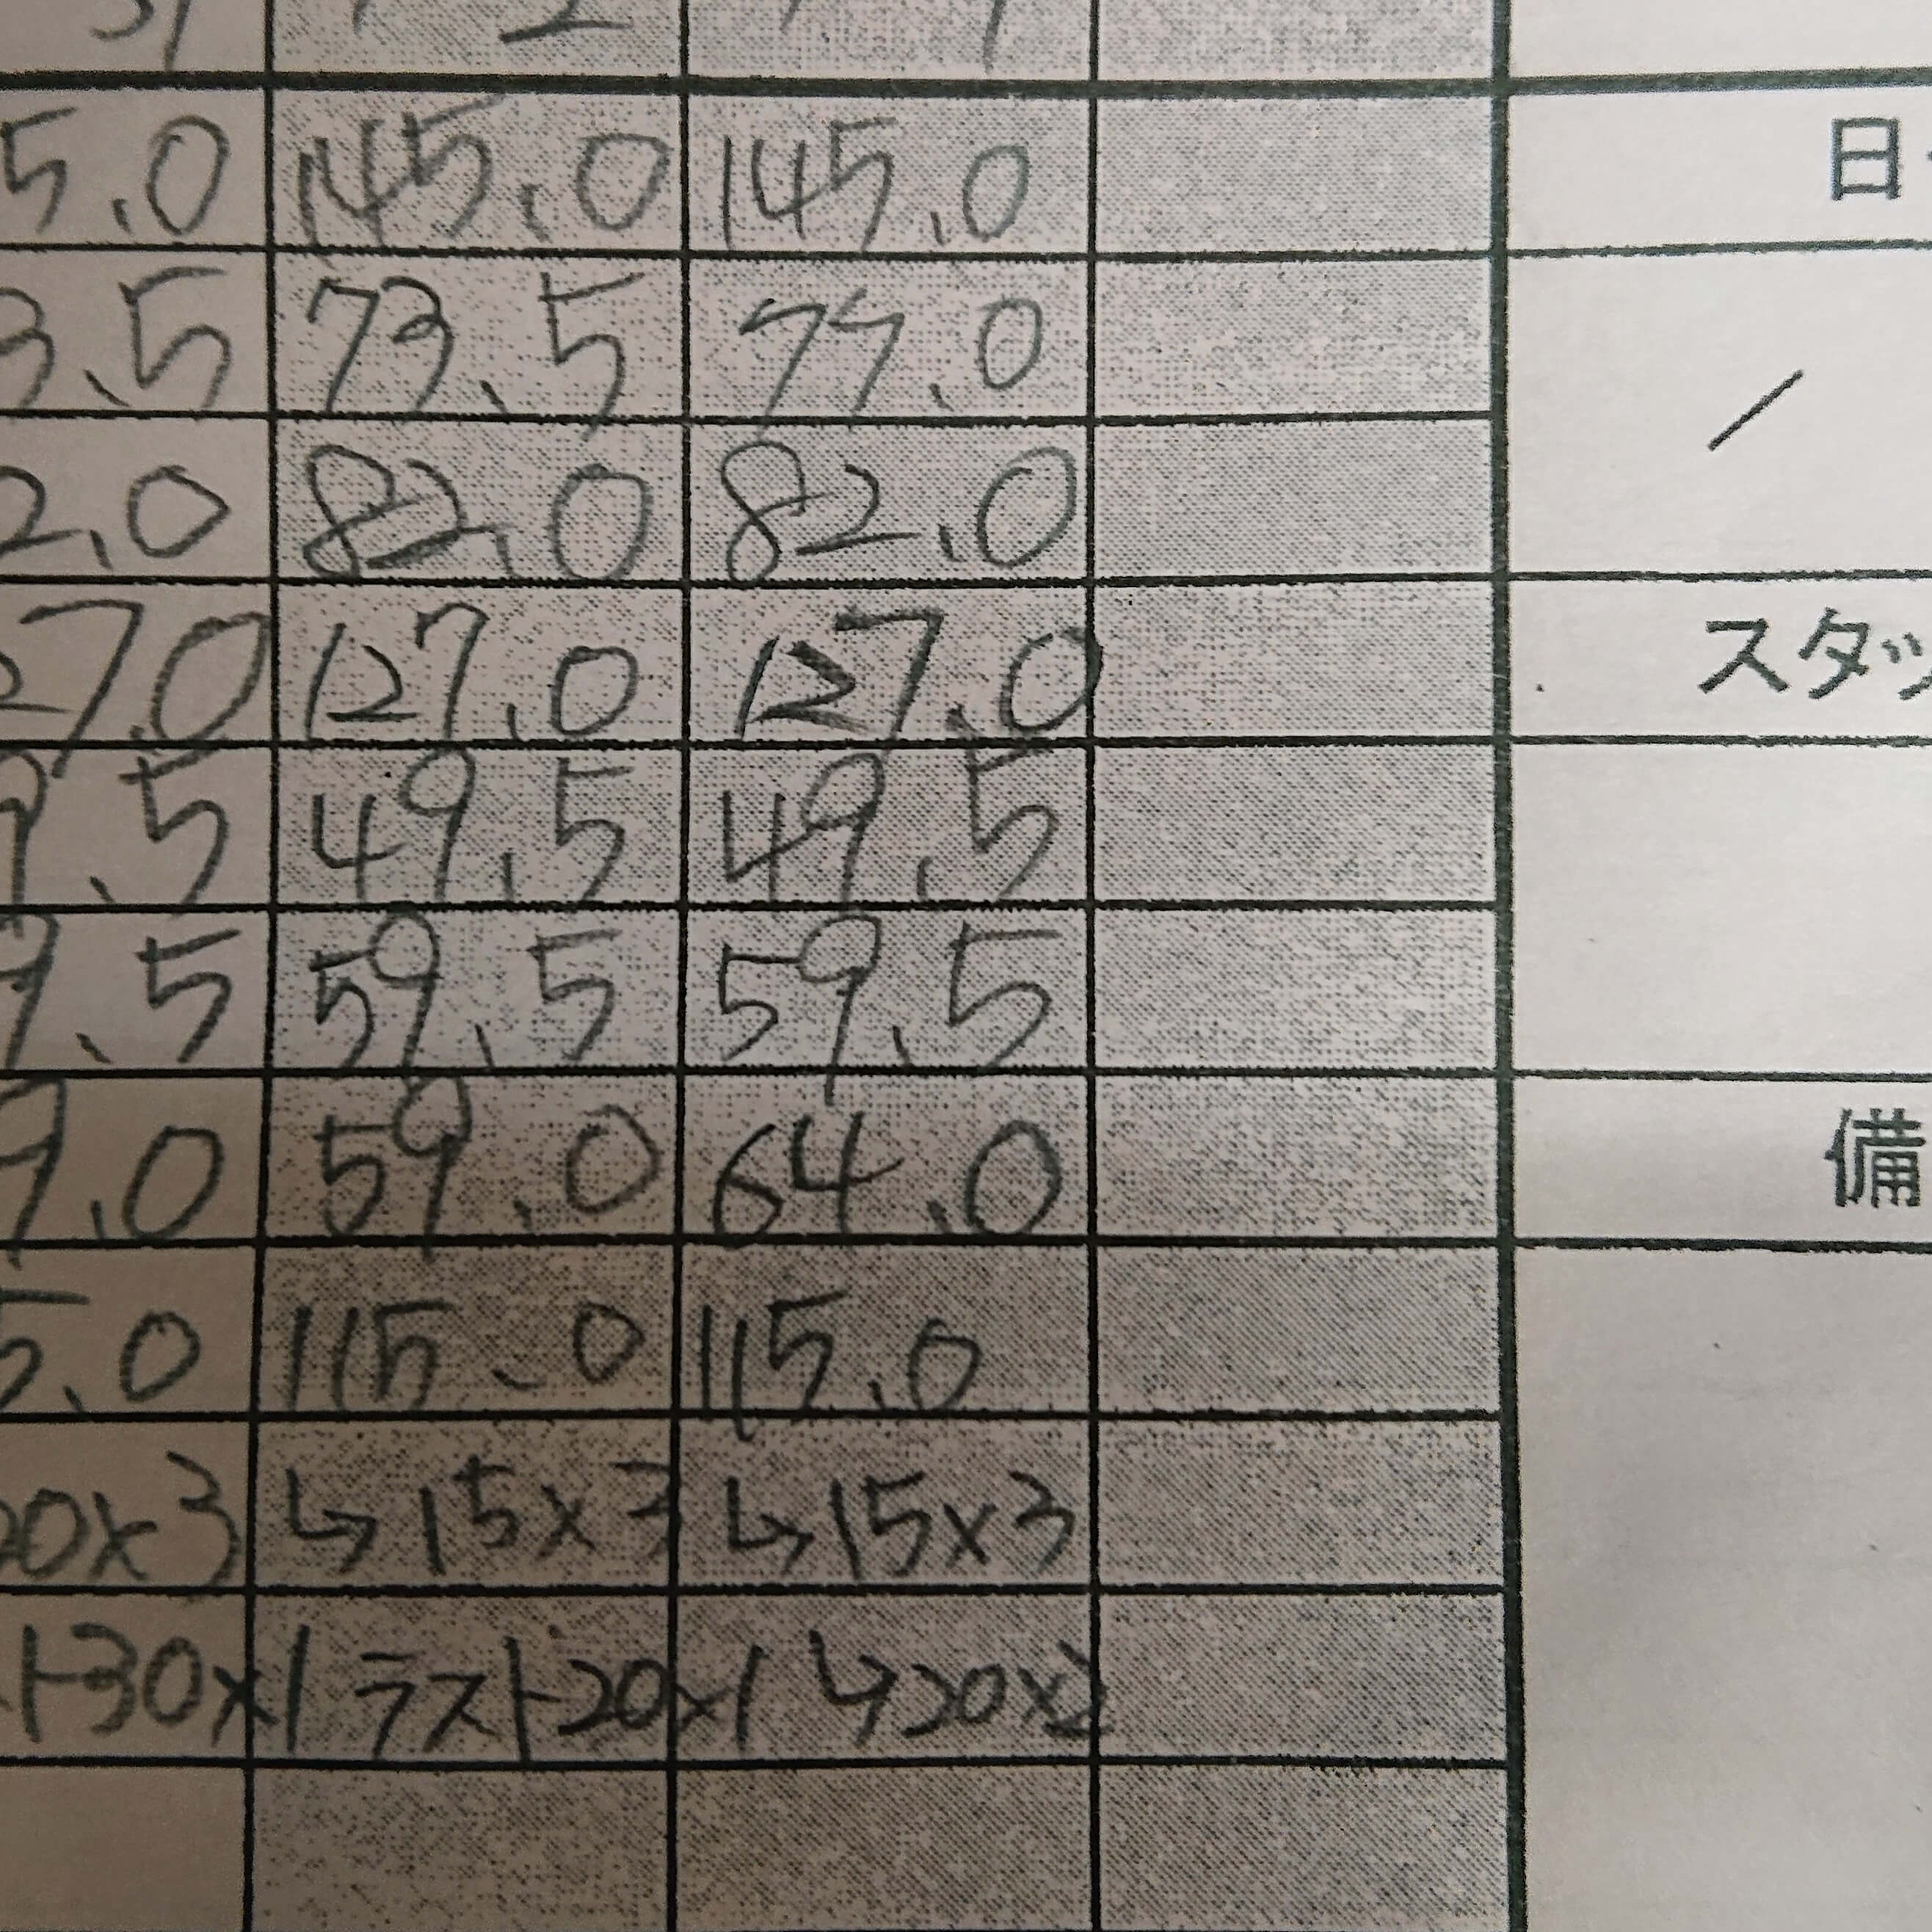 5.0 145.0 145.0 日
3.5 73.5 77.0 /
2.0 82.0 82.0
27.0 127.0 127.0 スタッ
9.5 49.5 49.5
9.5 59.5 59.5
9.0 59.0 64.0 備
5.0 115.0 115.0
20×3 ↳15×3 ↳15×3
ト30×1 ラスト20×1 ↳20×2